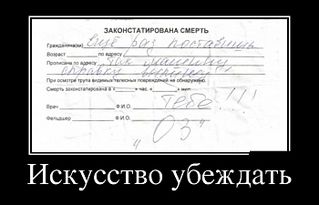 ЗАКОНСТАТИРОВАНА СМЕРТЬ
Гражданке(ин) ещё раз поставишь
Возраст по адресу
Прописана по адресу так машину,
справку выпишу
При осмотре трупа видимых телесных повреждений не обнаружено.
Смерть законстатирована в « » час. « » мин.
тебе!!!
Врач Ф.И.О.
Фельдшер Ф.И.О.
"03"
Искусство убеждать